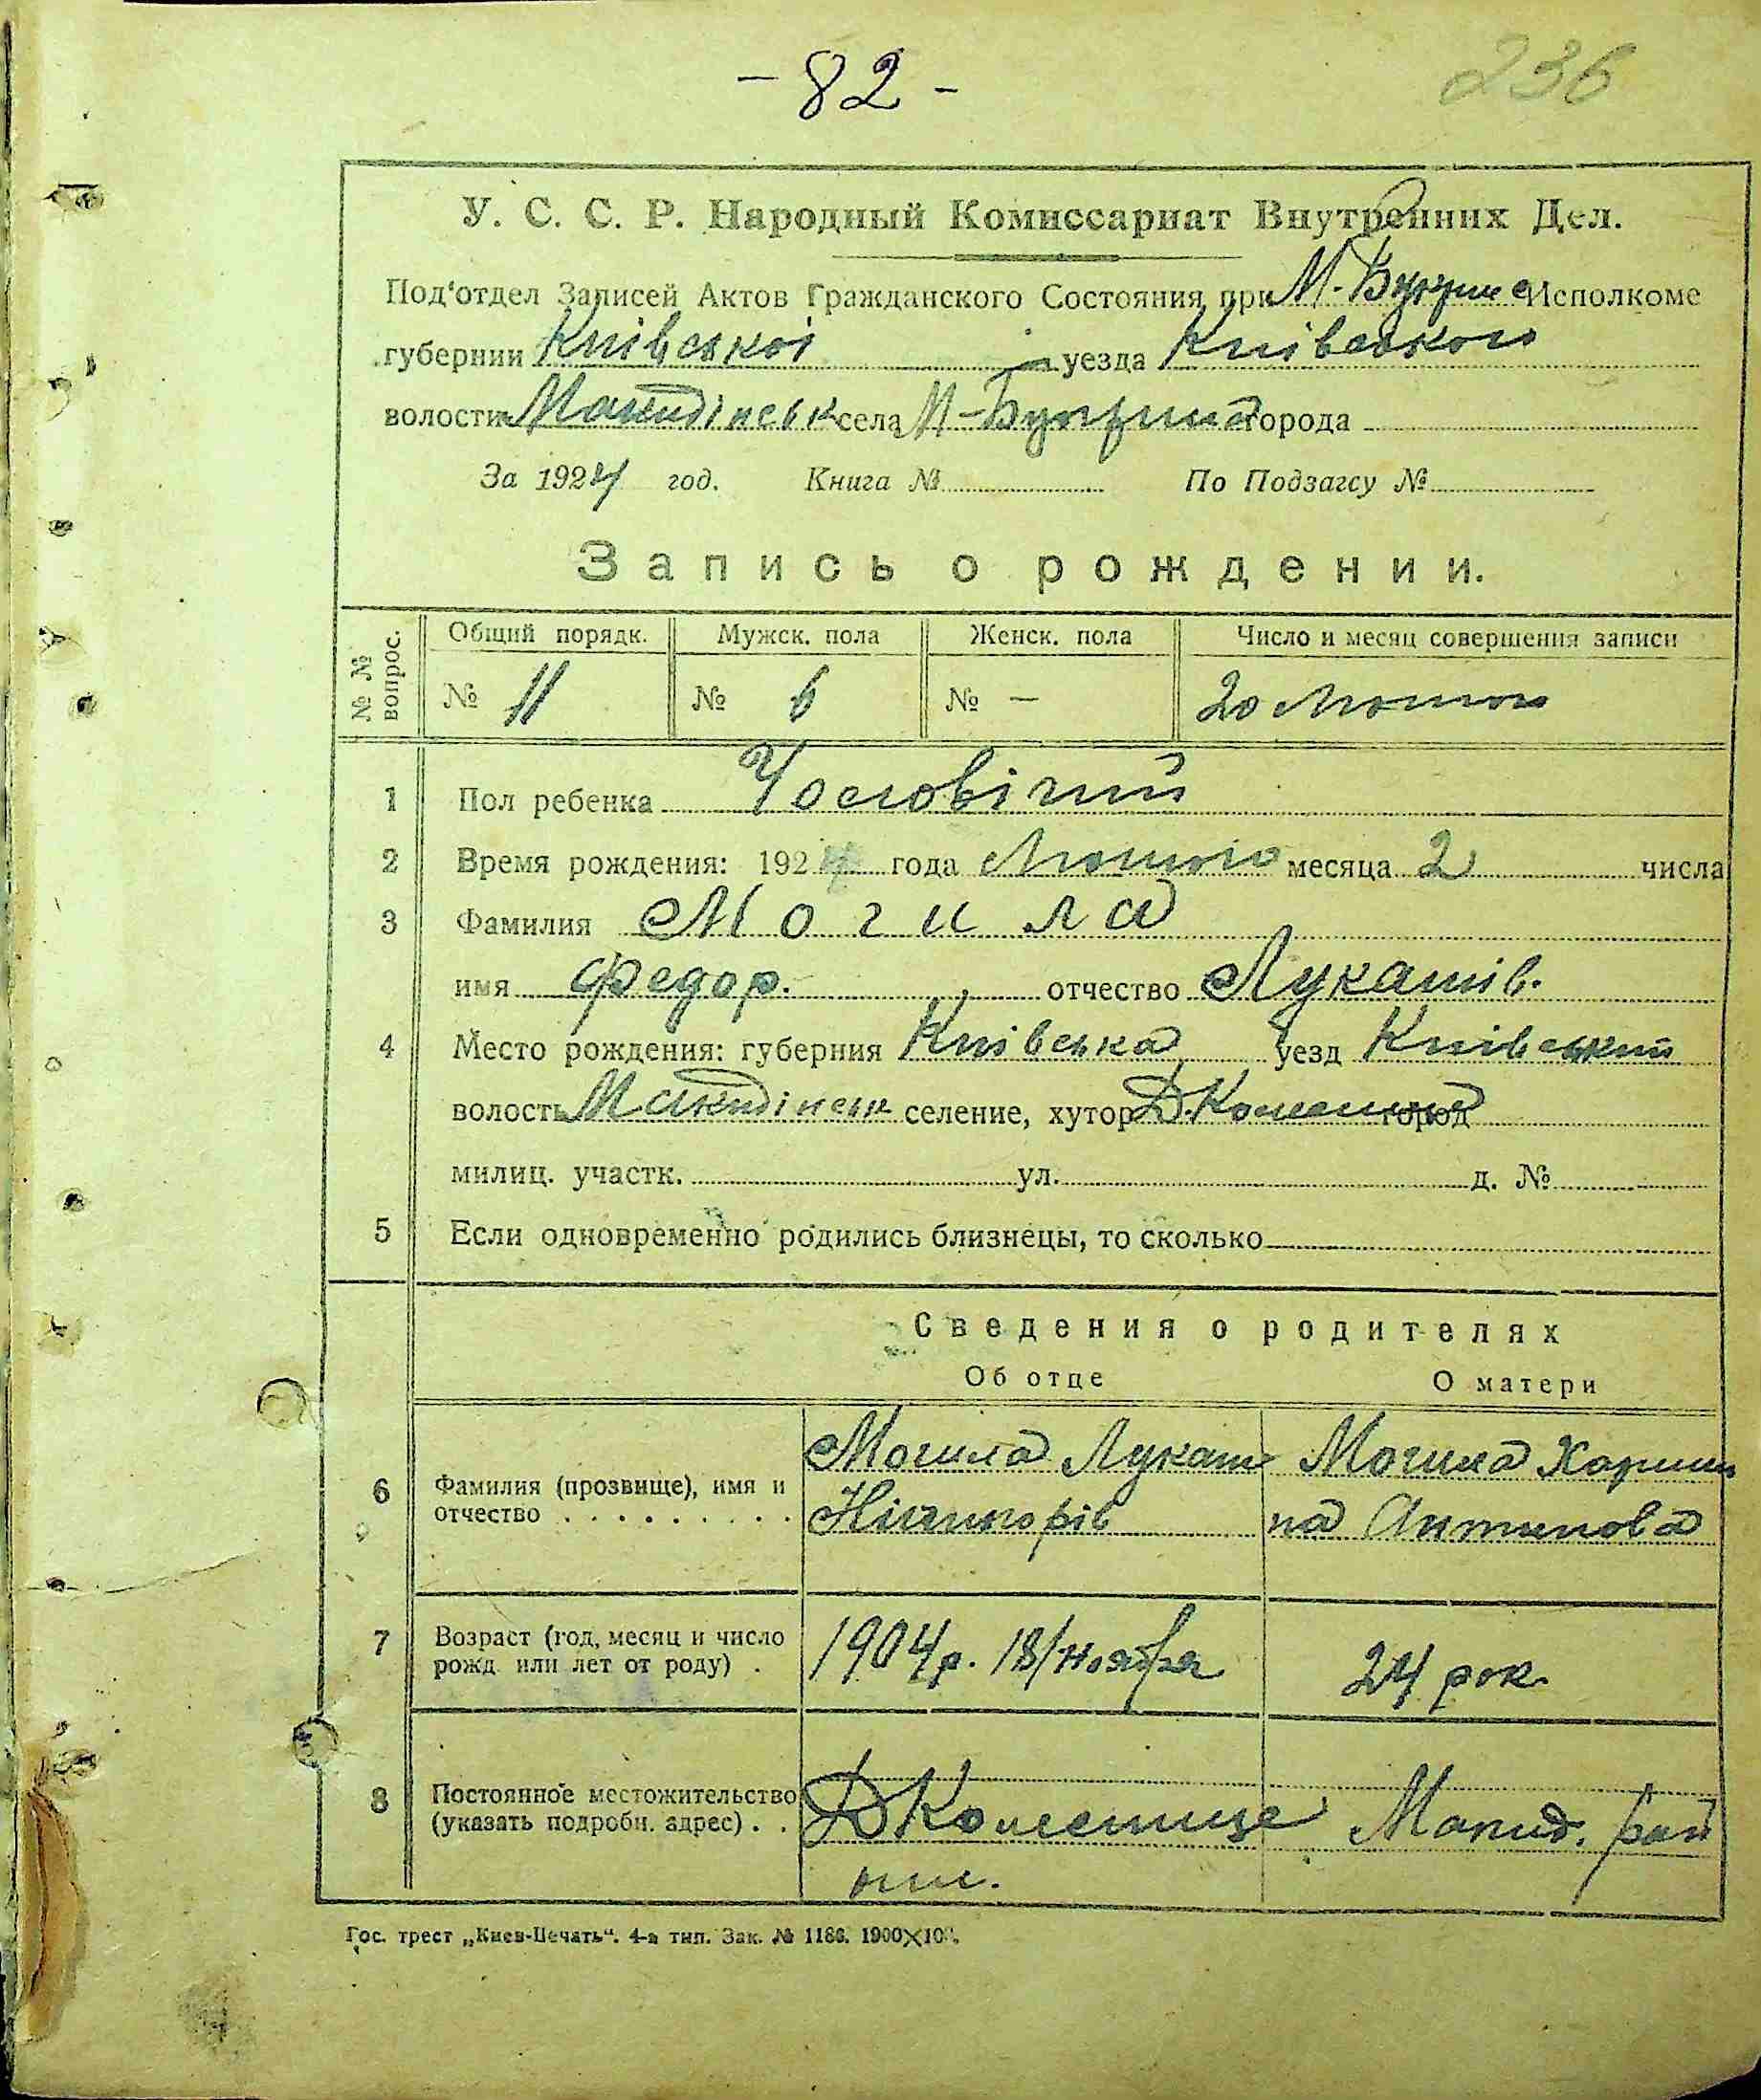 - 82 -
236
У. С. С. Р. Народный Комиссариат Внутренних Дел.
Под‘отдел Записей Актов Гражданского Состояния при М-Букрине Исполкоме
губернии Київської уезда Київського
волости Макидінськ села М-Букрина города
За 1924 год. Книга № По Подзагсу №
Запись о рождении.
№ № вопрос. Общий порядк. Мужск. пола Женск. пола Число и месяц совершения записи
№ 11 № 6 № — 20 Лютого
1 Пол ребенка Чоловічий
2 Время рождения: 1924 года Лютого месяца 2 числа
3 Фамилия Могила
имя Федор. отчество Лукашів.
4 Место рождения: губерния Київська уезд Київський
волость Макидінськ селение, хутор город
милиц. участк. ул. д. №
5 Если одновременно родились близнецы, то сколько
Сведения о родителях
Об отце О матери
Могила Лукаш Могила Харити
6 Фамилия (прозвище), имя и
отчество . . . . . . . . . Нічипорів на Антипова
7 Возраст (год, месяц и число
рожд. или лет от роду) . 1904 р. 18/ноября 24 рок.
8 Постоянное местожительство
(указать подробн. адрес) . . Макид. рай
Гос. трест „Киев-Печать“. 4-я тип. Зак. № 1186. 1900×100.